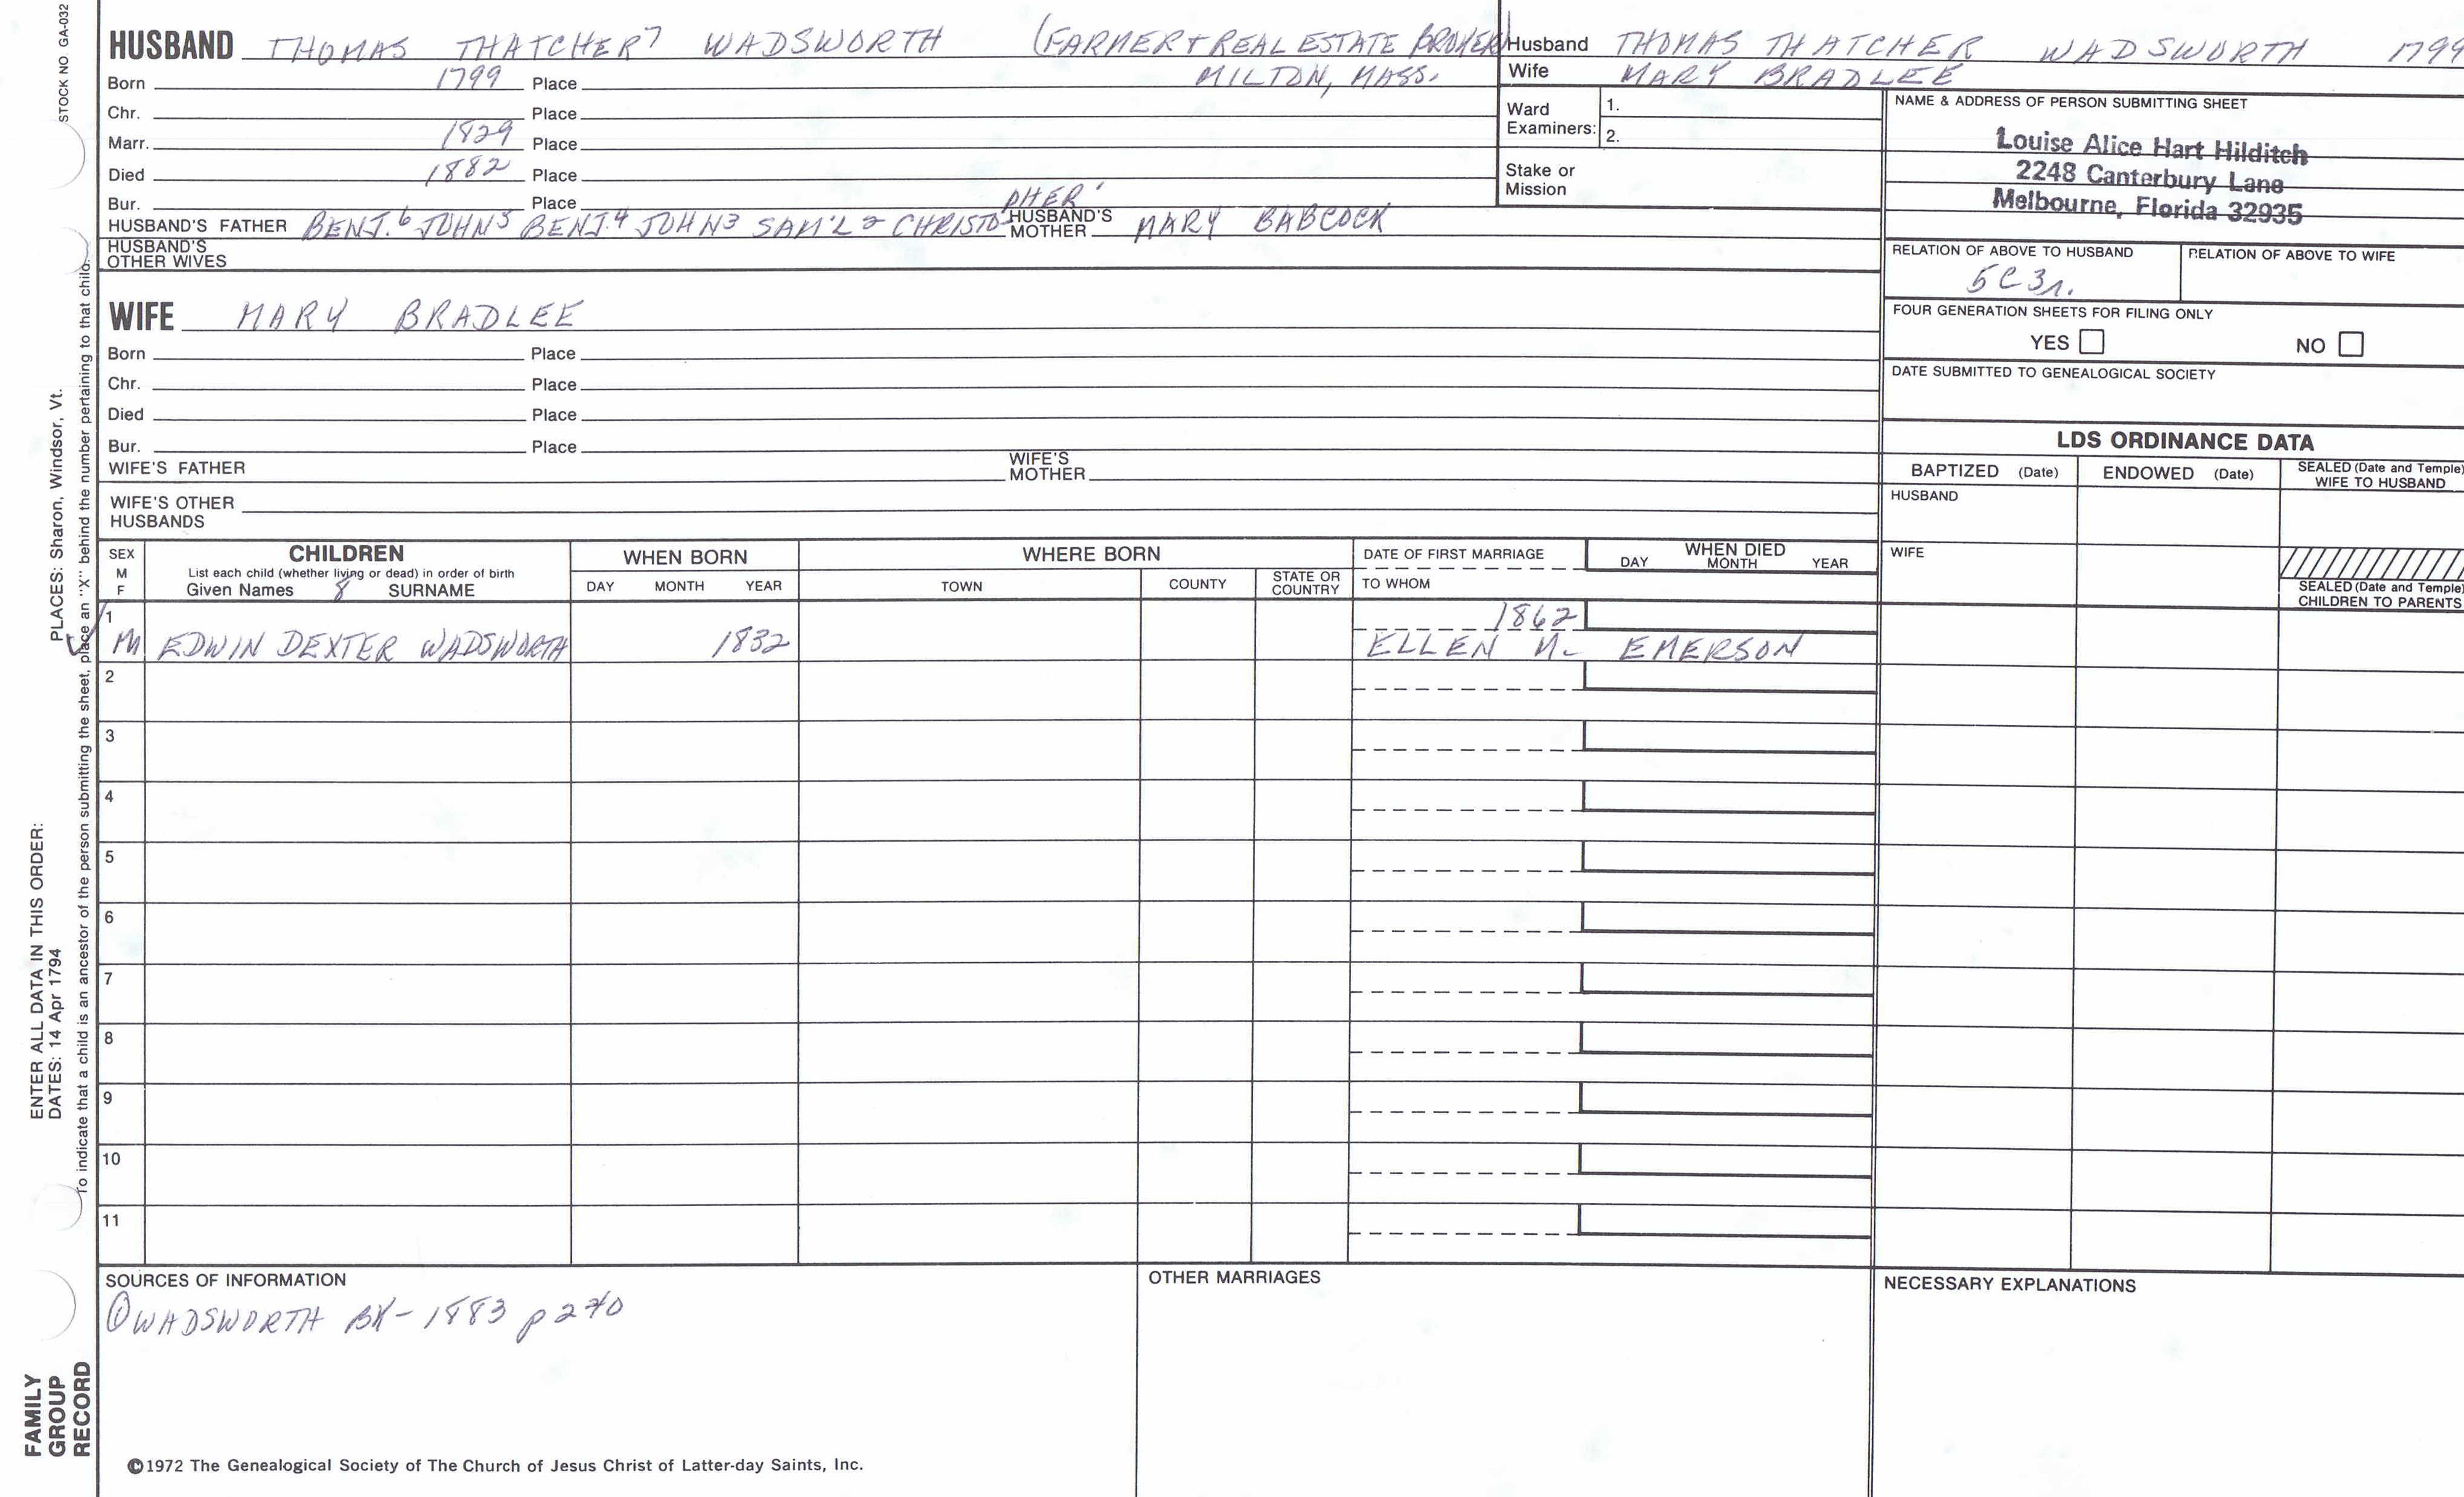 STOCK NO. GA-032
HUSBAND THOMAS THATCHER⁷ WADSWORTH (FARMER + REAL ESTATE BROKER)
Born 1799 Place MILTON, MASS.
Chr. Place
Marr. 1829 Place
Died 1882 Place
Bur. Place
HUSBAND'S FATHER BENJ.⁶ JOHN⁵ BENJ.⁴ JOHN³ SAM'L² CHRISTOPHER¹ HUSBAND'S MOTHER MARY BABCOCK
HUSBAND'S OTHER WIVES
WIFE MARY BRADLEE
Born Place
Chr. Place
Died Place
Bur. Place
WIFE'S FATHER WIFE'S MOTHER
WIFE'S OTHER HUSBANDS
Husband THOMAS THATCHER WADSWORTH 1799
Wife MARY BRADLEE
Ward Examiners: 1.
2.
Stake or Mission
NAME & ADDRESS OF PERSON SUBMITTING SHEET
Louise Alice Hart Hilditch
2248 Canterbury Lane
Melbourne, Florida 32935
RELATION OF ABOVE TO HUSBAND RELATION OF ABOVE TO WIFE
5C3r.
FOUR GENERATION SHEETS FOR FILING ONLY
YES NO
DATE SUBMITTED TO GENEALOGICAL SOCIETY
LDS ORDINANCE DATA
BAPTIZED (Date) ENDOWED (Date) SEALED (Date and Temple) WIFE TO HUSBAND
HUSBAND
WIFE
SEALED (Date and Temple) CHILDREN TO PARENTS
SEX M F
CHILDREN
List each child (whether living or dead) in order of birth
Given Names 8 SURNAME
WHEN BORN
DAY MONTH YEAR
WHERE BORN
TOWN COUNTY STATE OR COUNTRY
DATE OF FIRST MARRIAGE
TO WHOM
WHEN DIED
DAY MONTH YEAR
1 1862
M EDWIN DEXTER WADSWORTH 1832 ELLEN M. EMERSON
2
3
4
5
6
7
8
9
10
11
SOURCES OF INFORMATION
① WADSWORTH BK - 1883 p 270
OTHER MARRIAGES
NECESSARY EXPLANATIONS
©1972 The Genealogical Society of The Church of Jesus Christ of Latter-day Saints, Inc.
FAMILY
GROUP
RECORD
ENTER ALL DATA IN THIS ORDER:
DATES: 14 Apr 1794
PLACES: Sharon, Windsor, Vt.
To indicate that a child is an ancestor of the person submitting the sheet, place an "X" behind the number pertaining to that child.